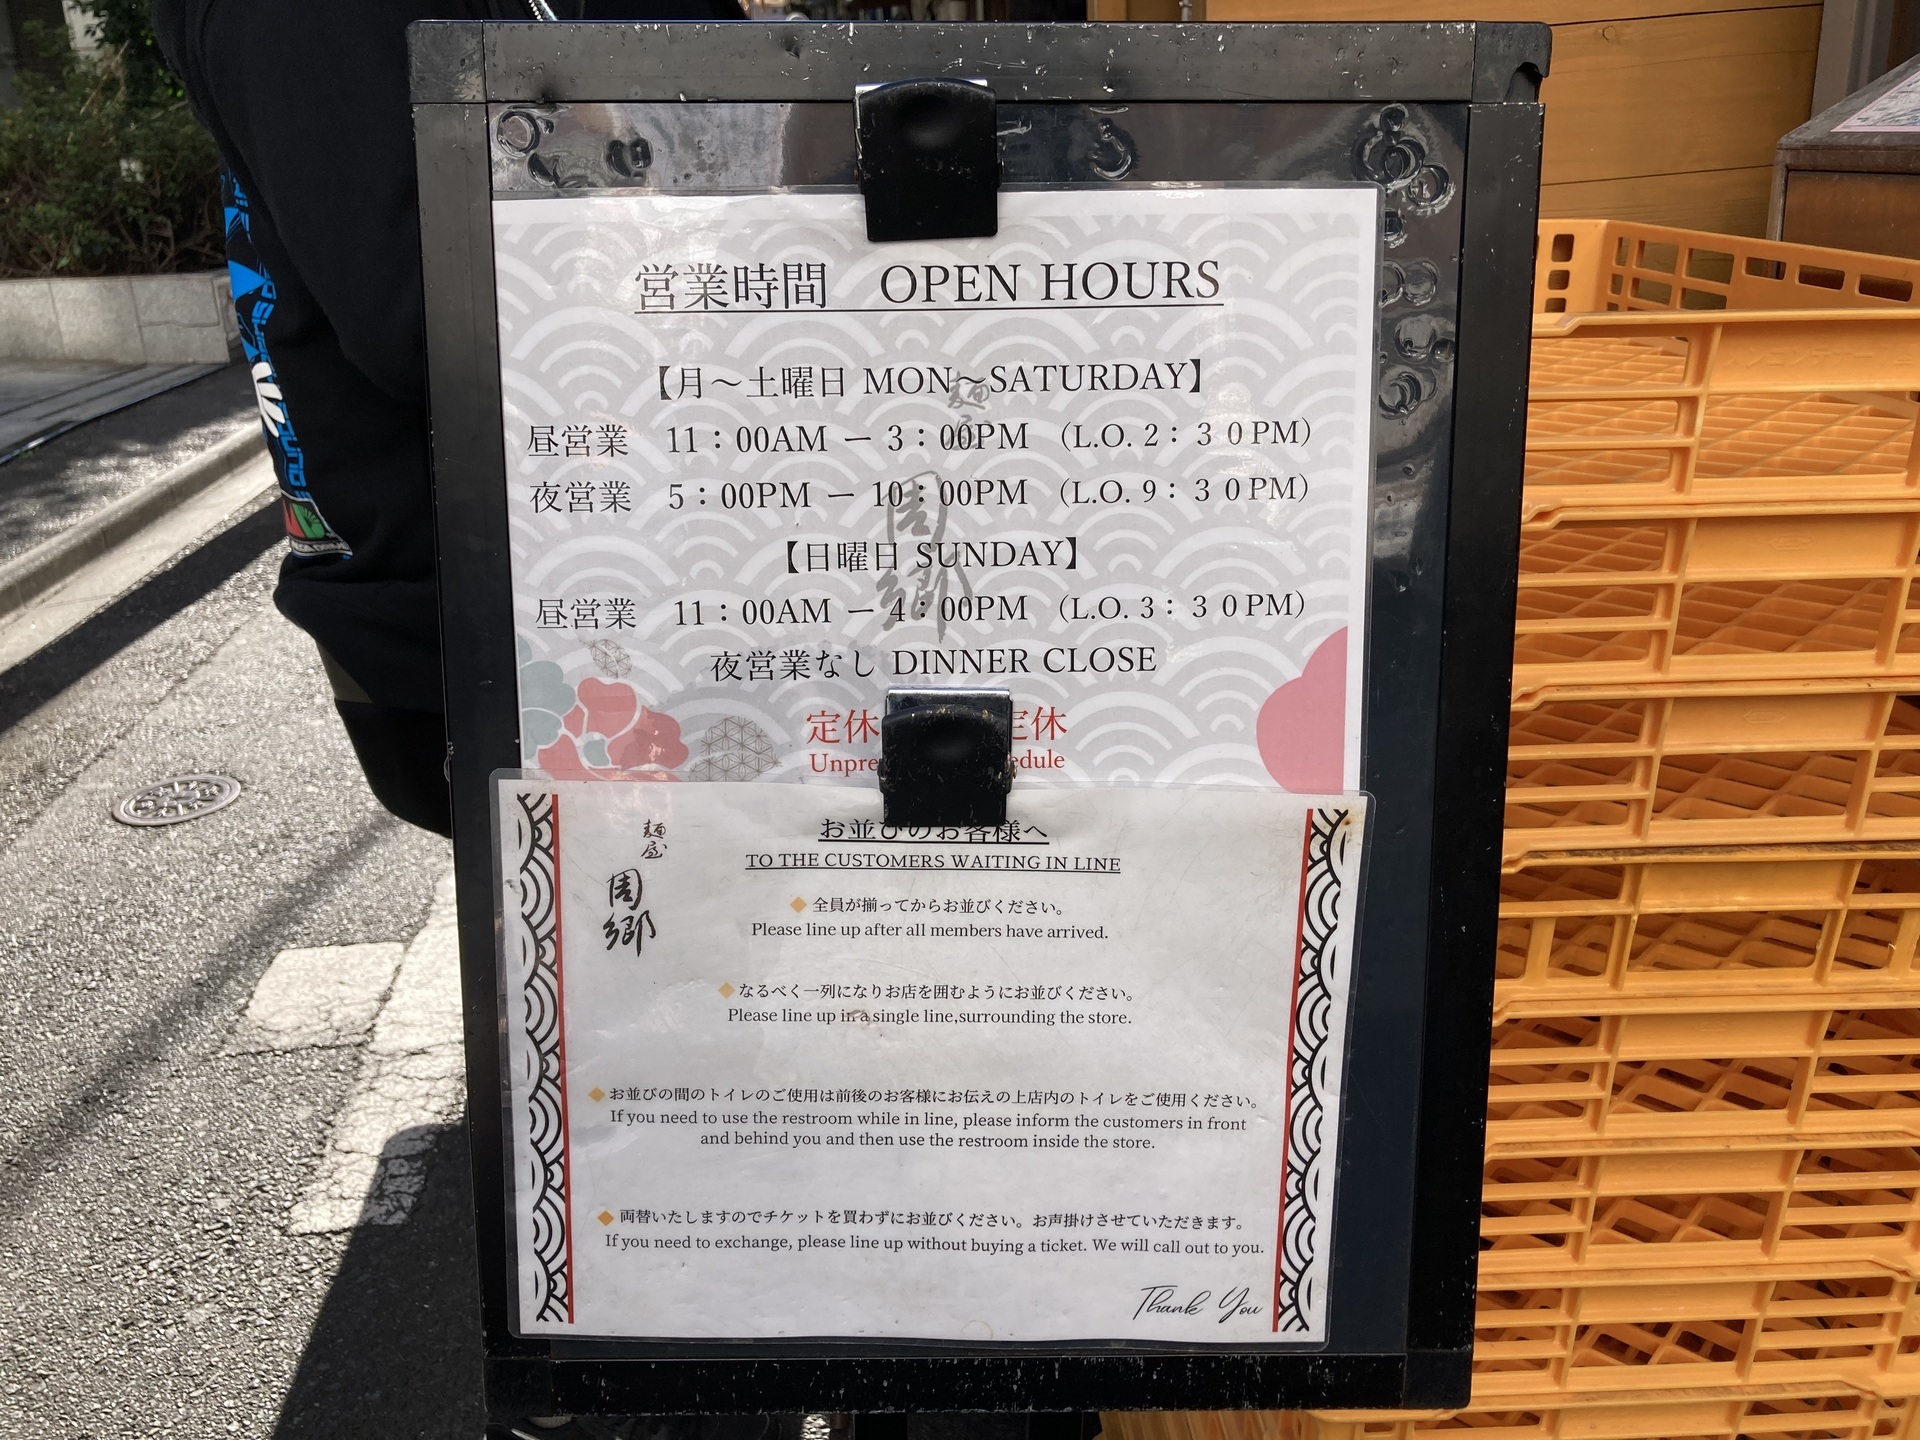 営業時間 OPEN HOURS
【月～土曜日 MON～SATURDAY】
昼営業 11：00AM ー 3：00PM （L.O. 2：３０PM）
夜営業 5：00PM ー 10：00PM （L.O. 9：３０PM）
【日曜日 SUNDAY】
昼営業 11：00AM ー 4：00PM （L.O. 3：３０PM）
夜営業なし DINNER CLOSE
定休 定休
麺屋
周郷
お並びのお客様へ
TO THE CUSTOMERS WAITING IN LINE
麺屋
周郷
◆ 全員が揃ってからお並びください。
Please line up after all members have arrived.
◆ なるべく一列になりお店を囲むようにお並びください。
Please line up in a single line,surrounding the store.
◆ お並びの間のトイレのご使用は前後のお客様にお伝えの上店内のトイレをご使用ください。
If you need to use the restroom while in line, please inform the customers in front
and behind you and then use the restroom inside the store.
◆ 両替いたしますのでチケットを買わずにお並びください。お声掛けさせていただきます。
If you need to exchange, please line up without buying a ticket. We will call out to you.
Thank You